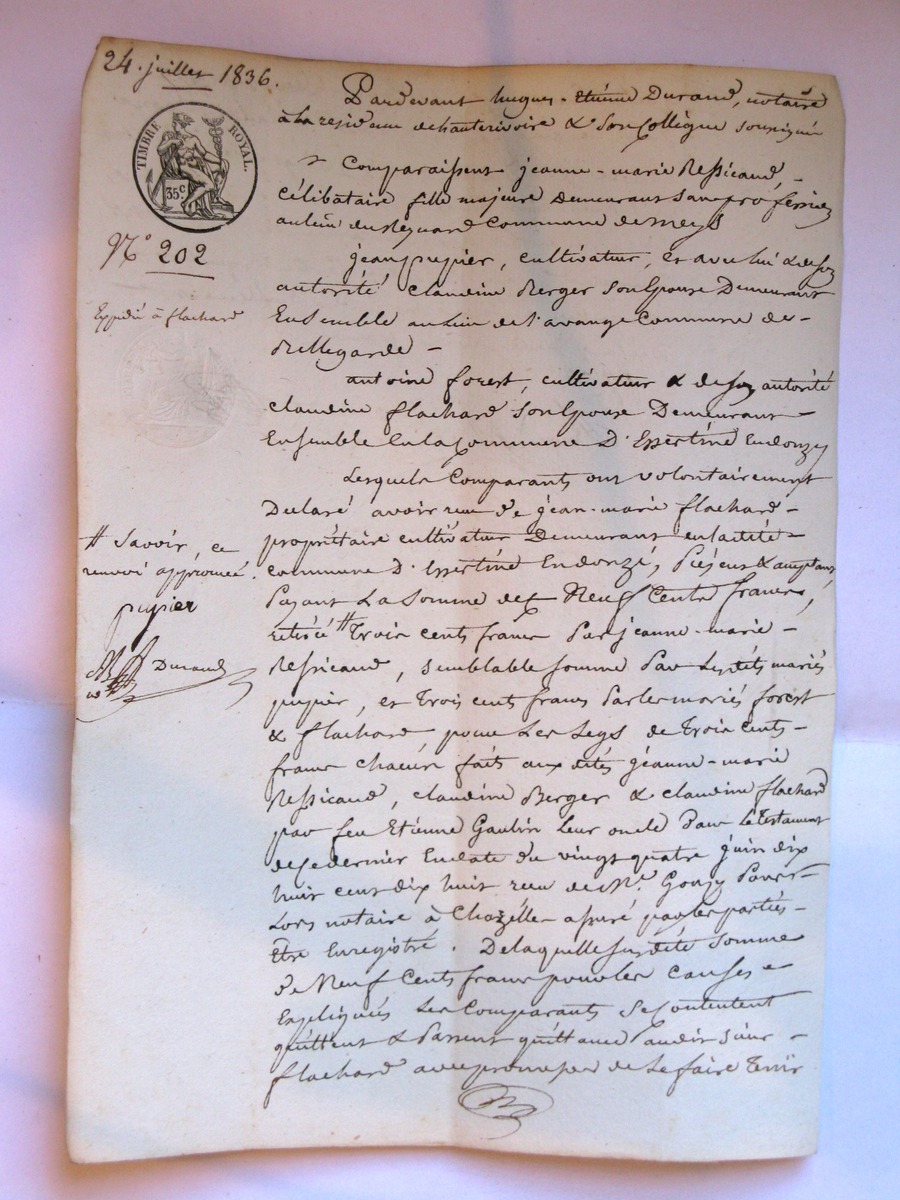 24. juillet 1836.
TIMBRE ROYAL.
35c
N° 202
Expédié à flachard
Pardevant hugues-Etienne Durand, notaire
à la residence de chanterivoire & son Collègue soussignés
Comparaissent jeanne-marie Ressicaud,
célibataire fille majeure Demeurant sans profession
au lieu du Reynard Commune de meys
jean pupier, cultivateur, et avec lui & de son
autorité claudine Berger son Epouse Demeurant
Ensemble au Lieu de l'avange Commune de-
Bellegarde-
antoine forest, cultivateur & de son autorité
claudine flachard son Epouse Demeurant-
Ensemble en la Commune D'Essertine En donzy
Lesquels Comparants ont volontairement
Declaré avoir reçu de jean-marie flachard-
propriétaire cultivateur Demeurant en la dité-
commune D'Essertine En donzé, Présent & acceptant
Payant La Somme de Neuf Cents francs,
# Trois cents francs Par jeanne-marie-
Ressicaud, semblable somme Par Les dits mariés
pupier, et Trois cent francs Par les mariés forest
& flachard pour Les Legs de Trois cents-
francs chacun faits aux dités jeanne-marie
Ressicaud, claudine Berger & claudine flachard
par feu Etienne Gaulin Leur oncle Dans Le Testament
de ce dernier En date du vingt quatre juin dix
huit cent dix huit reçu de Me. Gonzy Pour-
Lors notaire à Chazelle- assuré par les partiés-
Etre Enregistré. De laquelle susdité somme
de Neuf Cents francs pour les causes
Expliquées Les Comparants se contentent
quittent & Passent quittance audit sieur-
flachard avec promesse de Le faire Tenir
# Savoir, ce
renvoi approuvé.
pupier
Durand